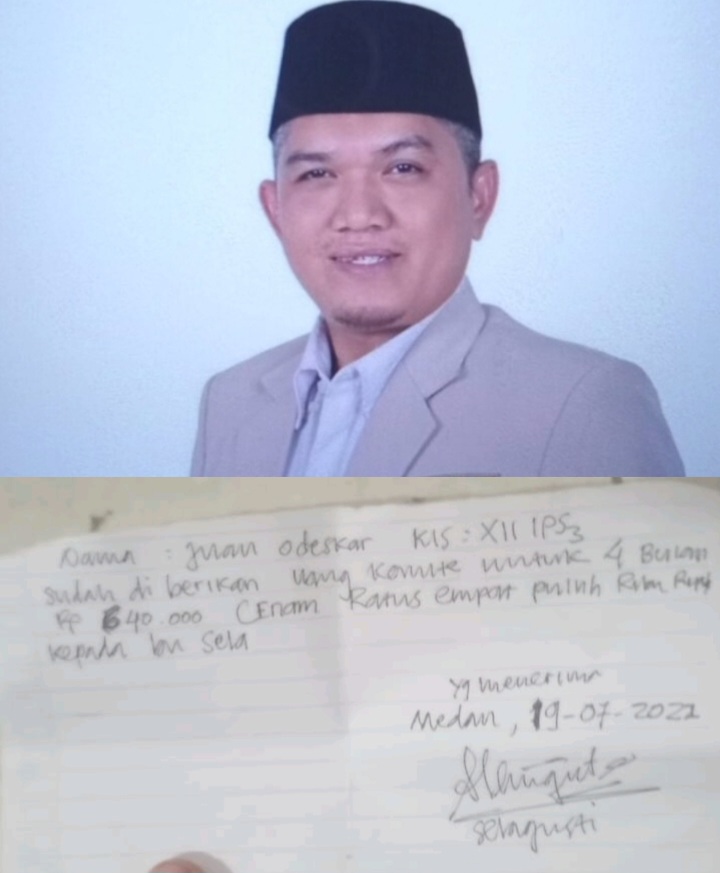 Nama : Juan Odeskar Kls : XII IPS3
sudah di berikan uang komite untuk 4 Bulan
Rp 640.000 (Enam Ratus empat puluh Ribu Rupi
kepada bu Sela
yg menerima
Medan, 19-07-2022
selagusti